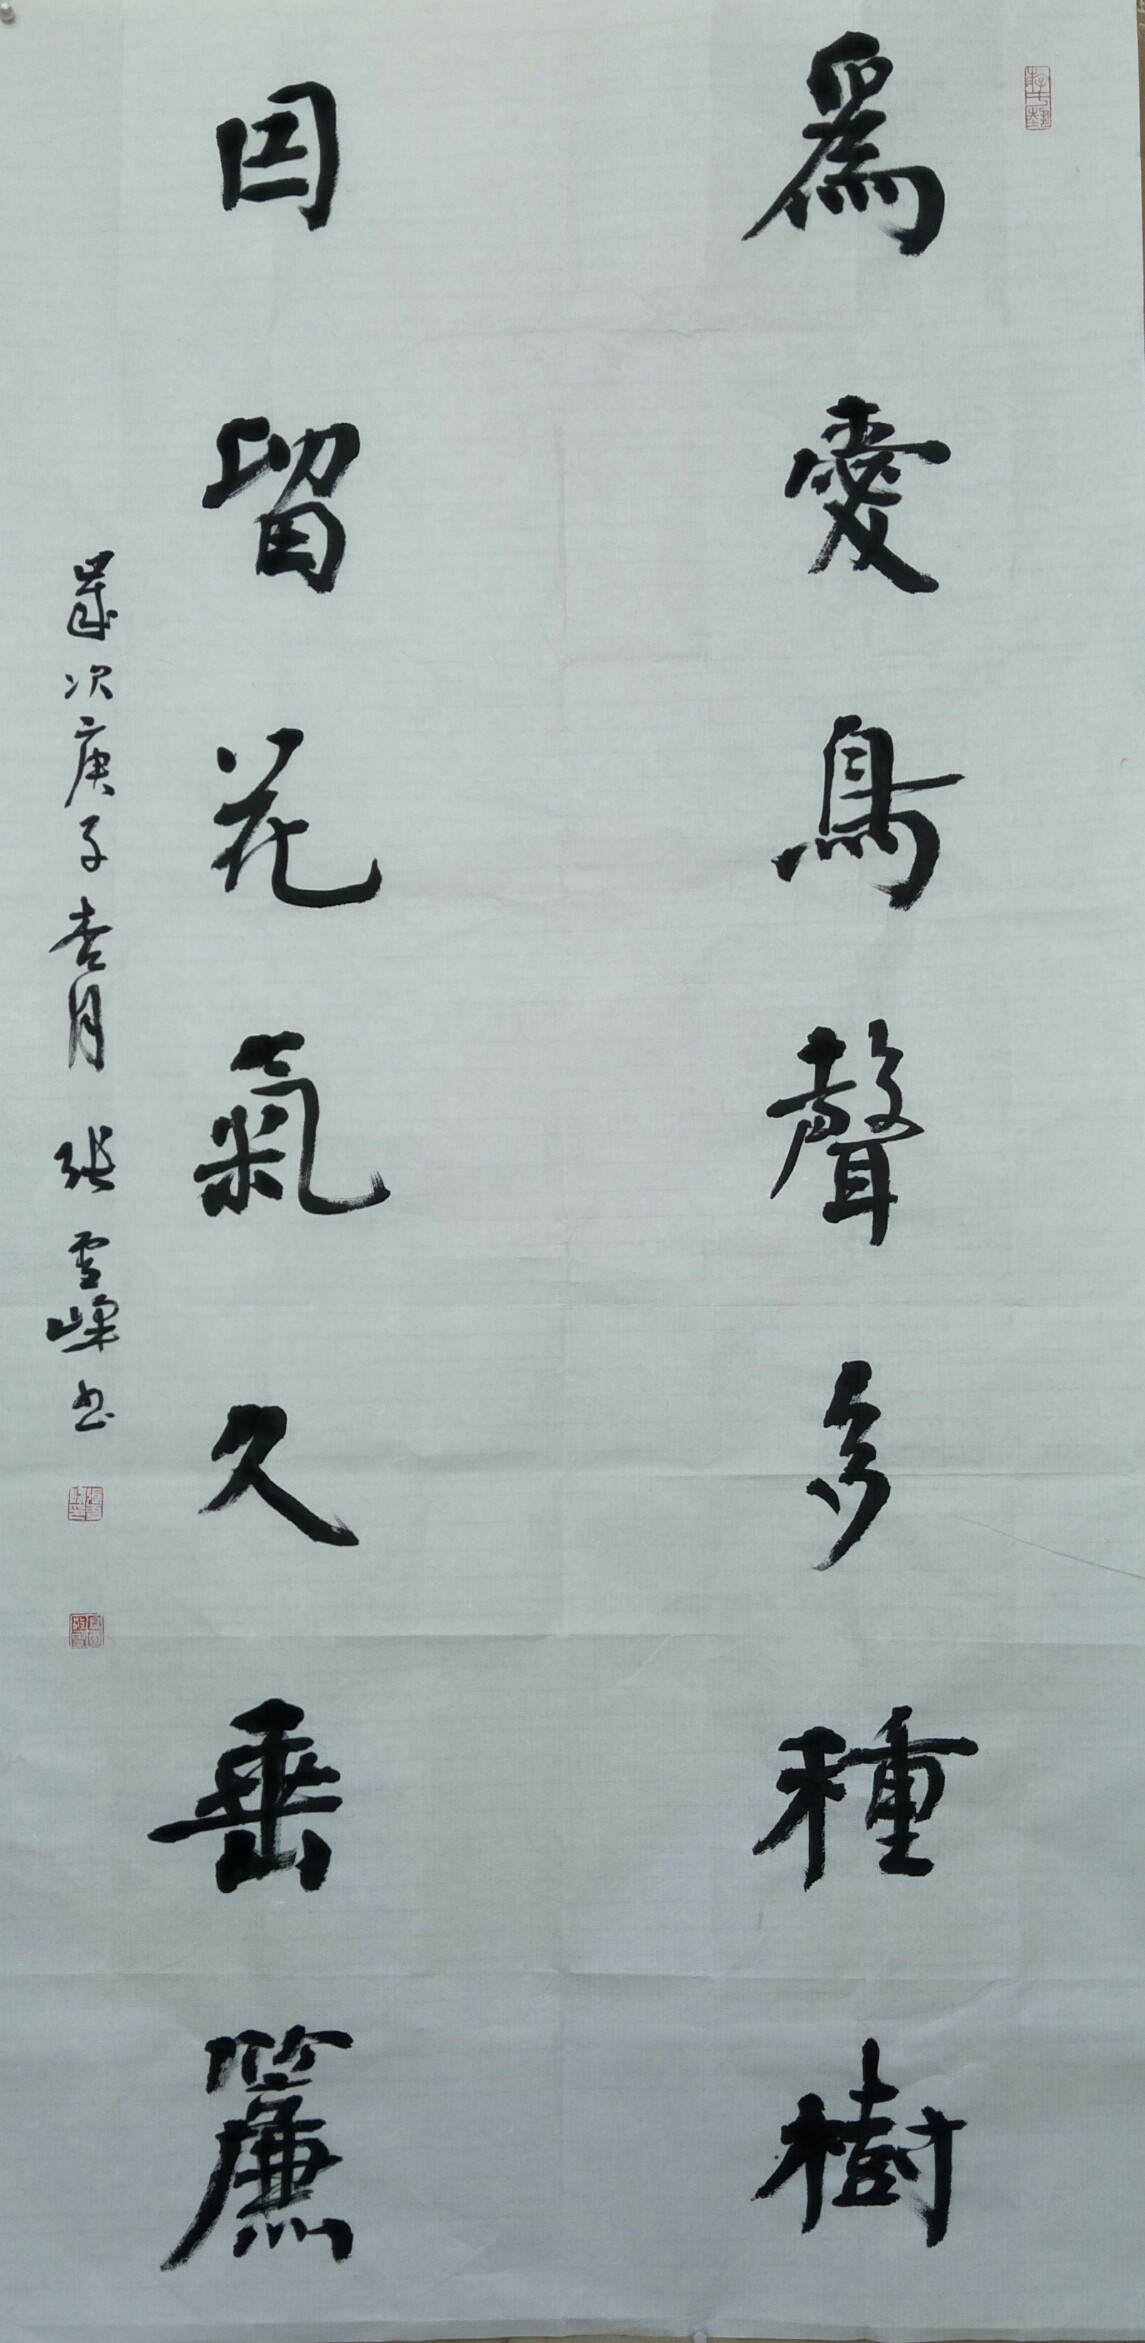 爲愛鳥聲多種樹
因留花氣久垂簾
歲次庚子杏月 張雪峰书